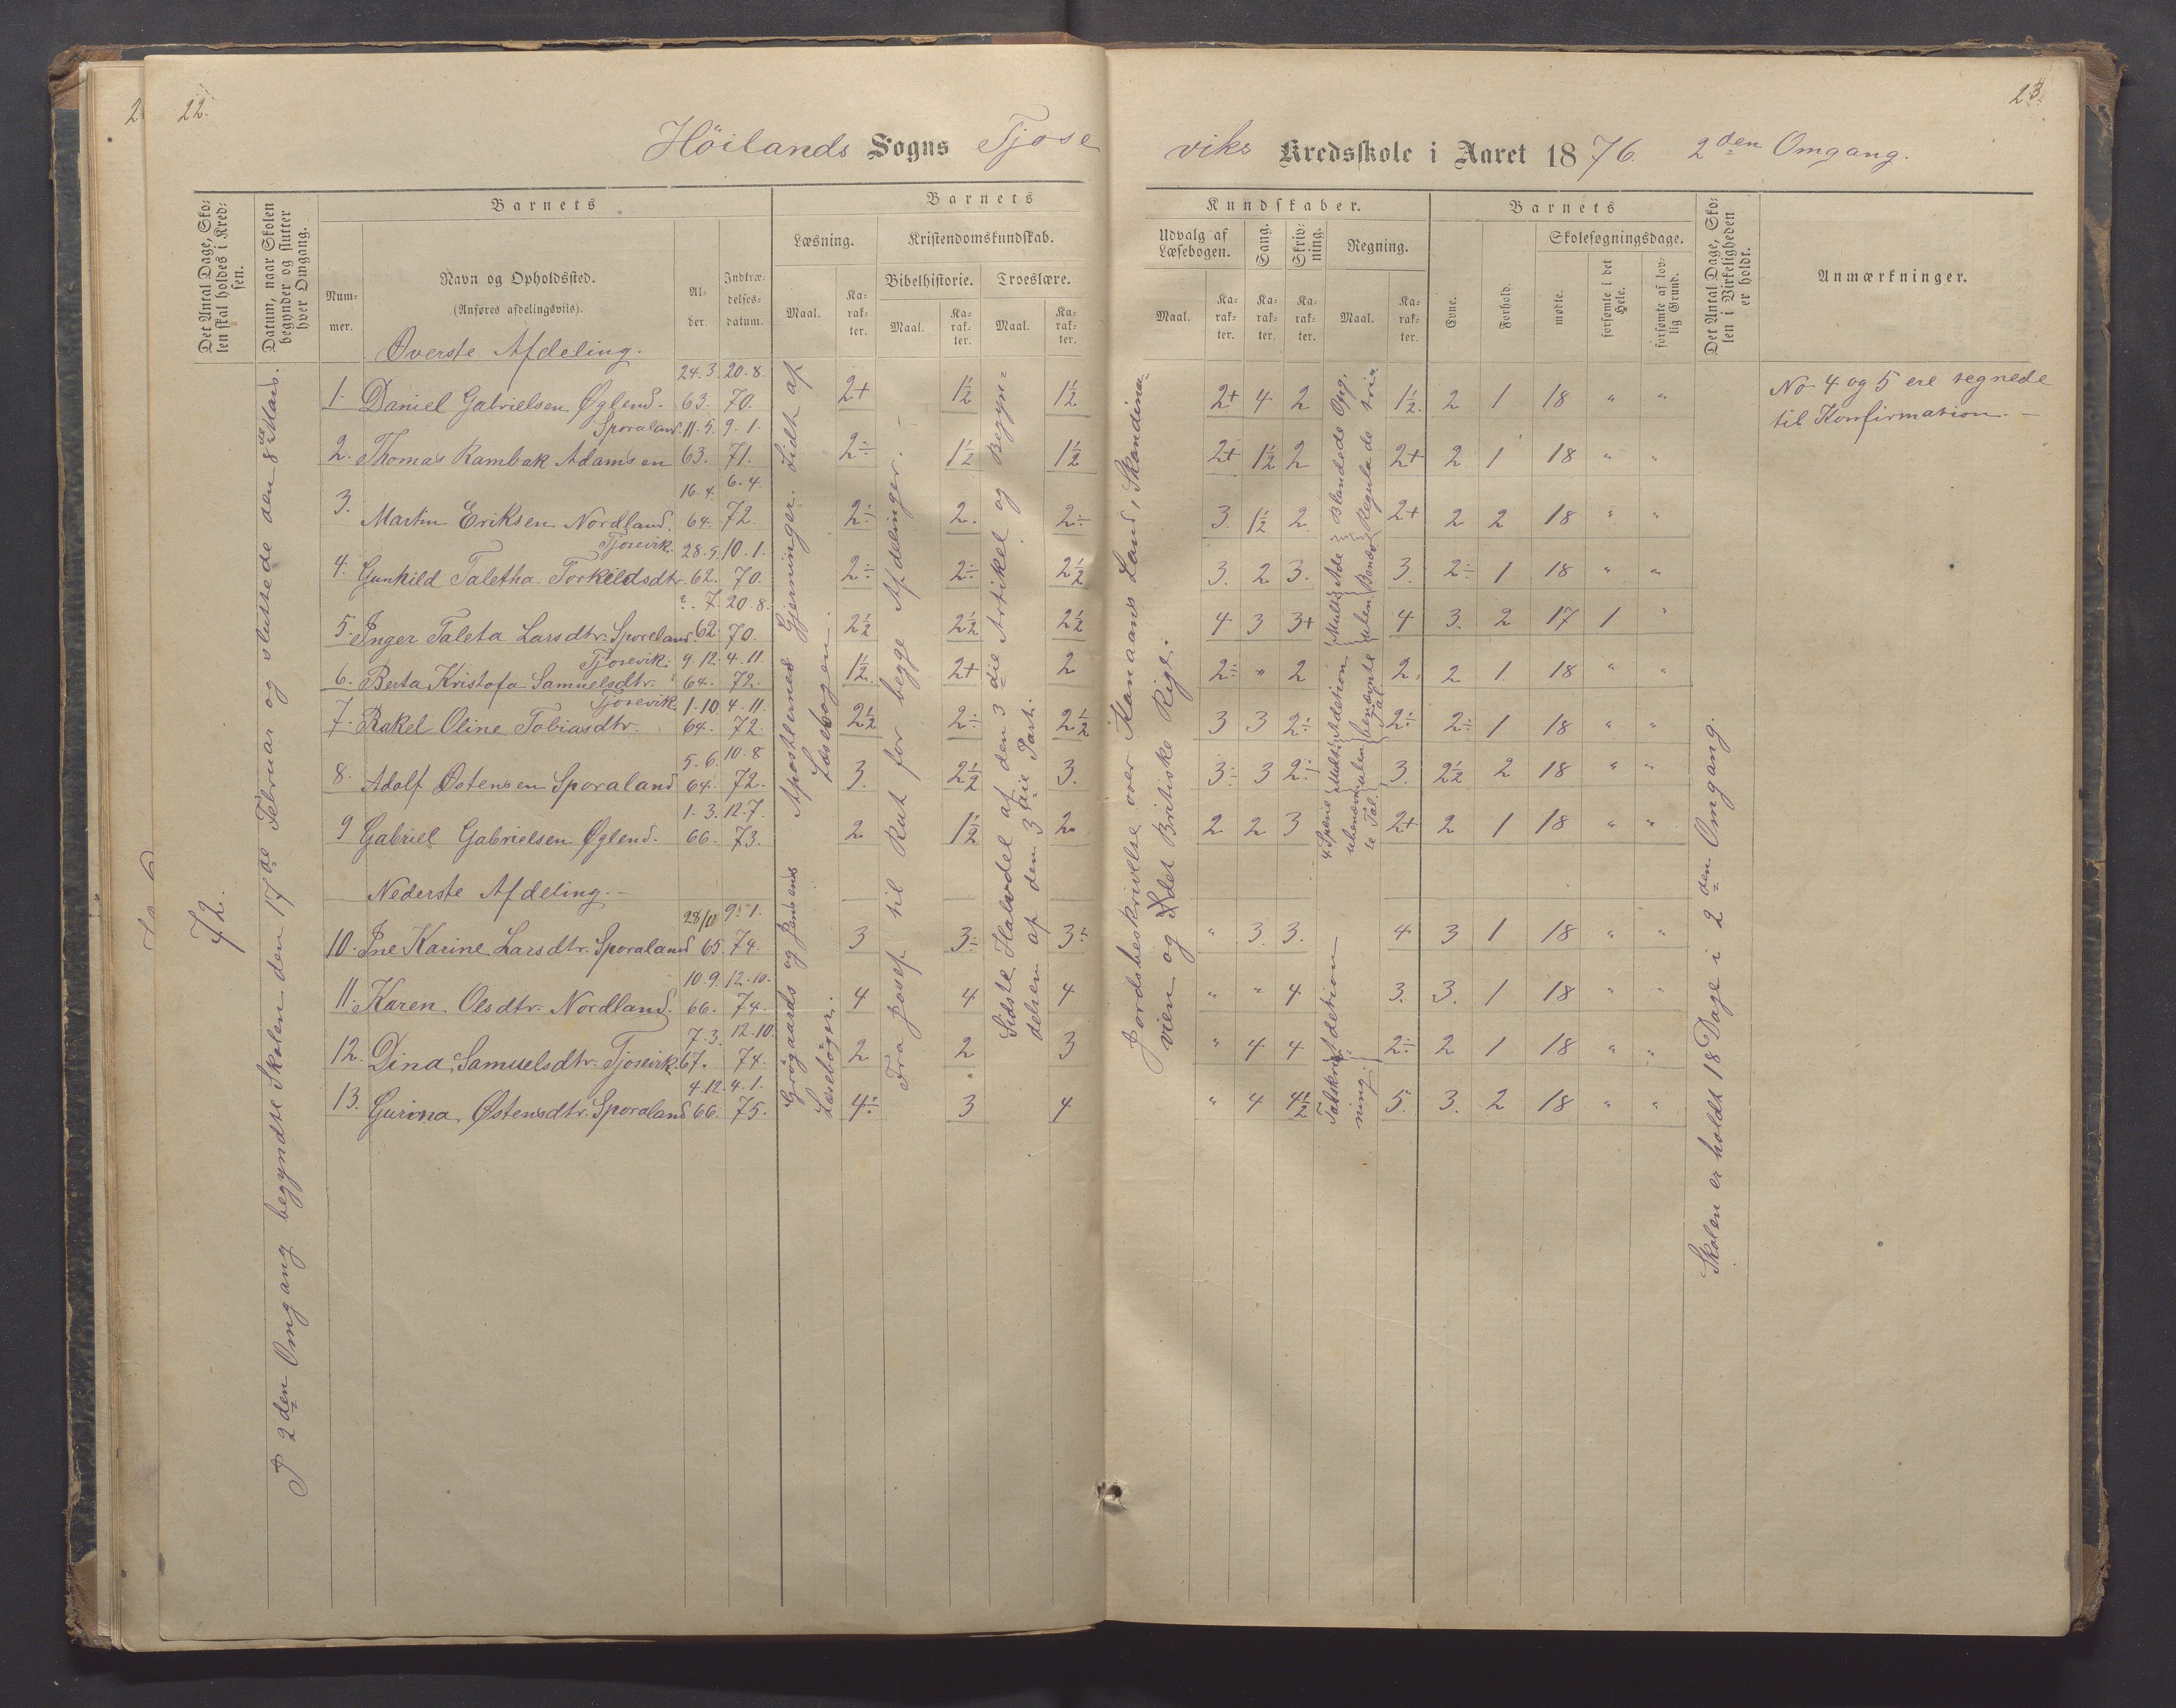 22.
23.
Höilands Sogns Tjose
viks Kredsskole i Aaret 1876. 2den Omgang.
Det Antal Dage, Sko-
len skal holdes i Kred-
sen.
Datum, naar Skolen
begynder og slutter
hver Omgang.
Barnets
Num-
mer.
Navn og Opholdssted.
(Anføres afdelingsviis).
Al-
der.
Indtræ-
delses-
datum.
Barnets
Læsning.
Maal.
Ka-
rak-
ter.
Kristendomskundskab.
Bibelhistorie.
Maal.
Ka-
rak-
ter.
Troeslære.
Maal.
Ka-
rak-
ter.
Kundskaber.
Udvalg af
Læsebogen.
Maal.
Ka-
rak-
ter.
Sang.
Ka-
rak-
ter.
Skriv-
ning.
Ka-
rak-
ter.
Regning.
Maal.
Ka-
rak-
ter.
Barnets
Evne.
Forhold.
Skolesøgningsdage.
mødte.
forsømte i det
Hele.
forsømte af lov-
lig Grund.
Det Antal Dage, Sko-
len i Virkeligheden
er holdt.
Anmærkninger.
72.
I 2den Omgang begyndte Skolen den 17de Februar og sluttede den 8de Mars.
Øverste Afdeling.
1. Daniel Gabrielsen Øglend. 24.3.63. 20.8.70. 2+ 1½ 1½ 2+ 4 2 1½ 2 1 18 " "
Sporaland.
2. Thomas Rambak Adamsen 11.5.63. 9.1.71. 2÷ 1½ 1½ 2+ 1½ 2 2+ 2 1 18 " "
3. Martin Eriksen Nordland. 16.4.64. 6.4.72. 2÷ 2. 2÷ 3. 1½ 2. 2+ 2 2 18 " "
Tjosevik.
4. Gunhild Taletha Torkildsdtr. 28.5.62. 10.1.70. 2÷ 2÷ 2½ 3. 2 3. 3. 2÷ 1 18 " "
5. Inger Taleta Larsdtr. Sporeland. 7.62. 20.8.70. 2½ 2½ 2½ 4 3 3+ 4 3. 2 17 1 "
Tjosevik.
6. Berta Kristofa Samuelsdtr. 9.12.64. 4.11.72. 1½ 2+ 2 2÷ " 2 2. 2 1 18 " "
Tjosevik.
7. Rakel Oline Tobiasdtr. 1.10.64. 4.11.72. 2½ 2÷ 2½ 3 3 2÷ 2÷ 2÷ 1 18 " "
8. Adolf Østensen Sporaland 5.6.64. 10.8.72. 3. 2½ 3. 3÷ 3 2÷ 3. 2½ 2 18 " "
9 Gabriel Gabrielsen Øglend. 1.3.66. 12.7.73. 2 1½ 2. 2 2 3 2+ 2 1 18 " "
Nederste Afdeling.
10. Ine Karine Larsdtr. Sporaland 28/10 65. 9.1.74. 3 3÷ 3÷ " 3. 3. 4 3 1 18 " "
11. Karen Olsdtr. Nordland. 10.9.66. 12.10.74. 4 4 4 " " 4 3. 3. 1 18 " "
12. Dina Samuelsdtr. Tjosevik. 7.3.67. 12.10.74. 2 2 3 " 4 4 2÷ 2 1 18 " "
13. Gurina Østensdtr. Sporaland 4.12.66. 4.1.75. 4÷ 3 4 " 4 4½ 5. 3. 2 18 " "
Apostlernes Gjerninger. Lidt af
Læsebogen.
Grögaards og Jensens
Læsebøger.
Fra Josef til Rut for begge Afdelinger.
Sidste Halvdel af den 3die Artikel og Begyn-
delsen af den 3die Part.
Jordsbeskrivelse over Kanaans Land, Skandina-
vien og det Britiske Rige.
Blandede Opg.
Regula de tri.
Multi Ade
Adetion
ubenævnte Tal.
4 Specie
ubenævn-
te Tal.
Adetion
Talskriv-
ning.
Skolen er holdt 18 Dage i 2den Omgang.
No 4 og 5 ere tegnede
til Konfirmation.